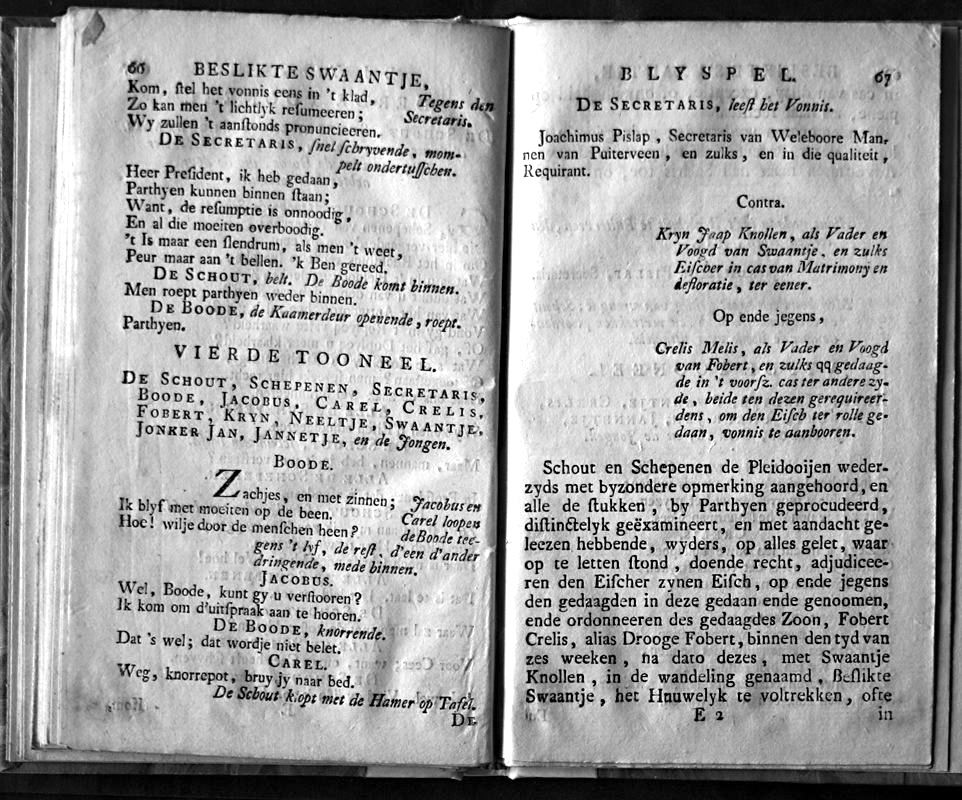 66 BESLIKTE SWAANTJE,
Kom, ſtel het vonnis eens in 't klad, Tegens den
Zo kan men 't lichtlyk reſumeeren; Secretaris.
Wy zullen 't aanſtonds pronuncieeren.
DE SECRETARIS, ſnel ſchryvende, mom-
pelt ondertuſſchen.
Heer Preſident, ik heb gedaan,
Parthyen kunnen binnen ſtaan;
Want, de reſumptie is onnoodig,
En al die moeiten overboodig.
't Is maar een ſlendrum, als men 't weet,
Peur maar aan 't bellen. 'k Ben gereed.
DE SCHOUT, belt. De Boode komt binnen.
Men roept parthyen weder binnen.
DE BOODE, de Kaamerdeur openende, roept.
Parthyen.
VIERDE TOONEEL.
DE SCHOUT, SCHEPENEN, SECRETARIS,
BOODE, JACOBUS, CAREL, CRELIS,
FOBERT, KRYN, NEELTJE, SWAANTJE,
JONKER JAN, JANNETJE, en de Jongen.
BOODE.
Zachjes, en met zinnen; Jacobus en
Ik blyf met moeiten op de been. Carel loopen
Hoe! wilje door de menſchen heen? de Boode tee-
gens 't lyf, de reſt, d'een d'ander
dringende, mede binnen.
JACOBUS.
Wel, Boode, kunt gy u verſtooren?
Ik kom om d'uitſpraak aan te hooren.
DE BOODE, knorrende.
Dat 's wel; dat wordje niet belet.
CAREL.
Weg, knorrepot, bruy jy naar bed.
De Schout klopt met de Hamer op Tafel.
DE
BLYSPEL. 67
DE SECRETARIS, leeſt het Vonnis.
Joachimus Pislap, Secretaris van Weleboore Man-
nen van Puiterveen, en zulks, en in die qualiteit,
Requirant.
Contra.
Kryn Jaap Knollen, als Vader en
Voogd van Swaantje, en zulks
Eiſcher in cas van Matrimony en
defloratie, ter eener.
Op ende jegens,
Crelis Melis, als Vader en Voogd
van Fobert, en zulks qq gedaag-
de in 't voorſz. cas ter andere zy-
de, beide ten dezen gerequireer-
dens, om den Eiſch ter rolle ge-
daan, vonnis te aanhooren.
Schout en Schepenen de Pleidooijen weder-
zyds met byzondere opmerking aangehoord, en
alle de ſtukken, by Parthyen geprocudeerd,
diſtinctelyk geëxamineert, en met aandacht ge-
leezen hebbende, wyders, op alles gelet, waar
op te letten ſtond, doende recht, adjudicee-
ren den Eiſcher zynen Eiſch, op ende jegens
den gedaagden in deze gedaan ende genoomen,
ende ordonneeren des gedaagdes Zoon, Fobert
Crelis, alias Drooge Fobert, binnen den tyd van
zes weeken, na dato dezes, met Swaantje
Knollen, in de wandeling genaamd, Beſlikte
Swaantje, het Huuwelyk te voltrekken, ofte
E 2 in